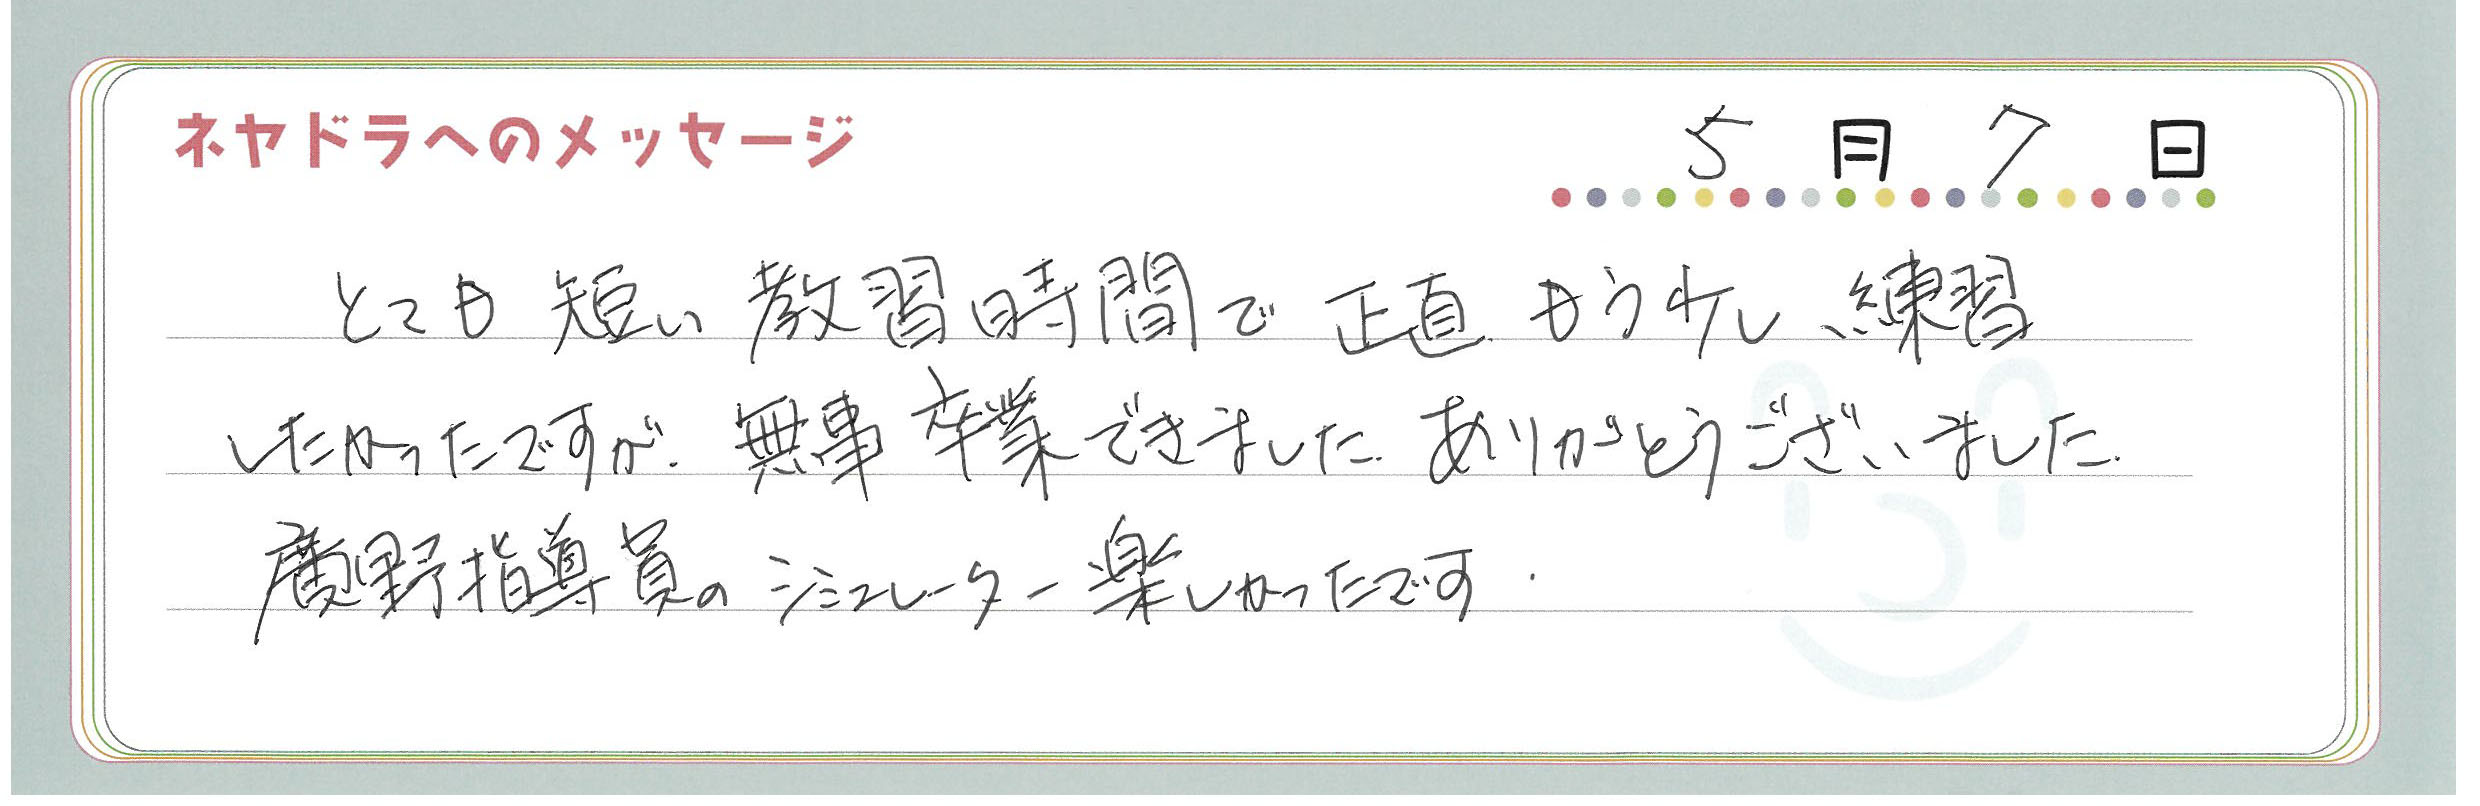 ネヤドラへのメッセージ
5月7日
とても短い教習時間で正直もう少し練習
したかったですが、無事卒業できました。ありがとうございました。
廣野指導員のシミュレーター楽しかったです.